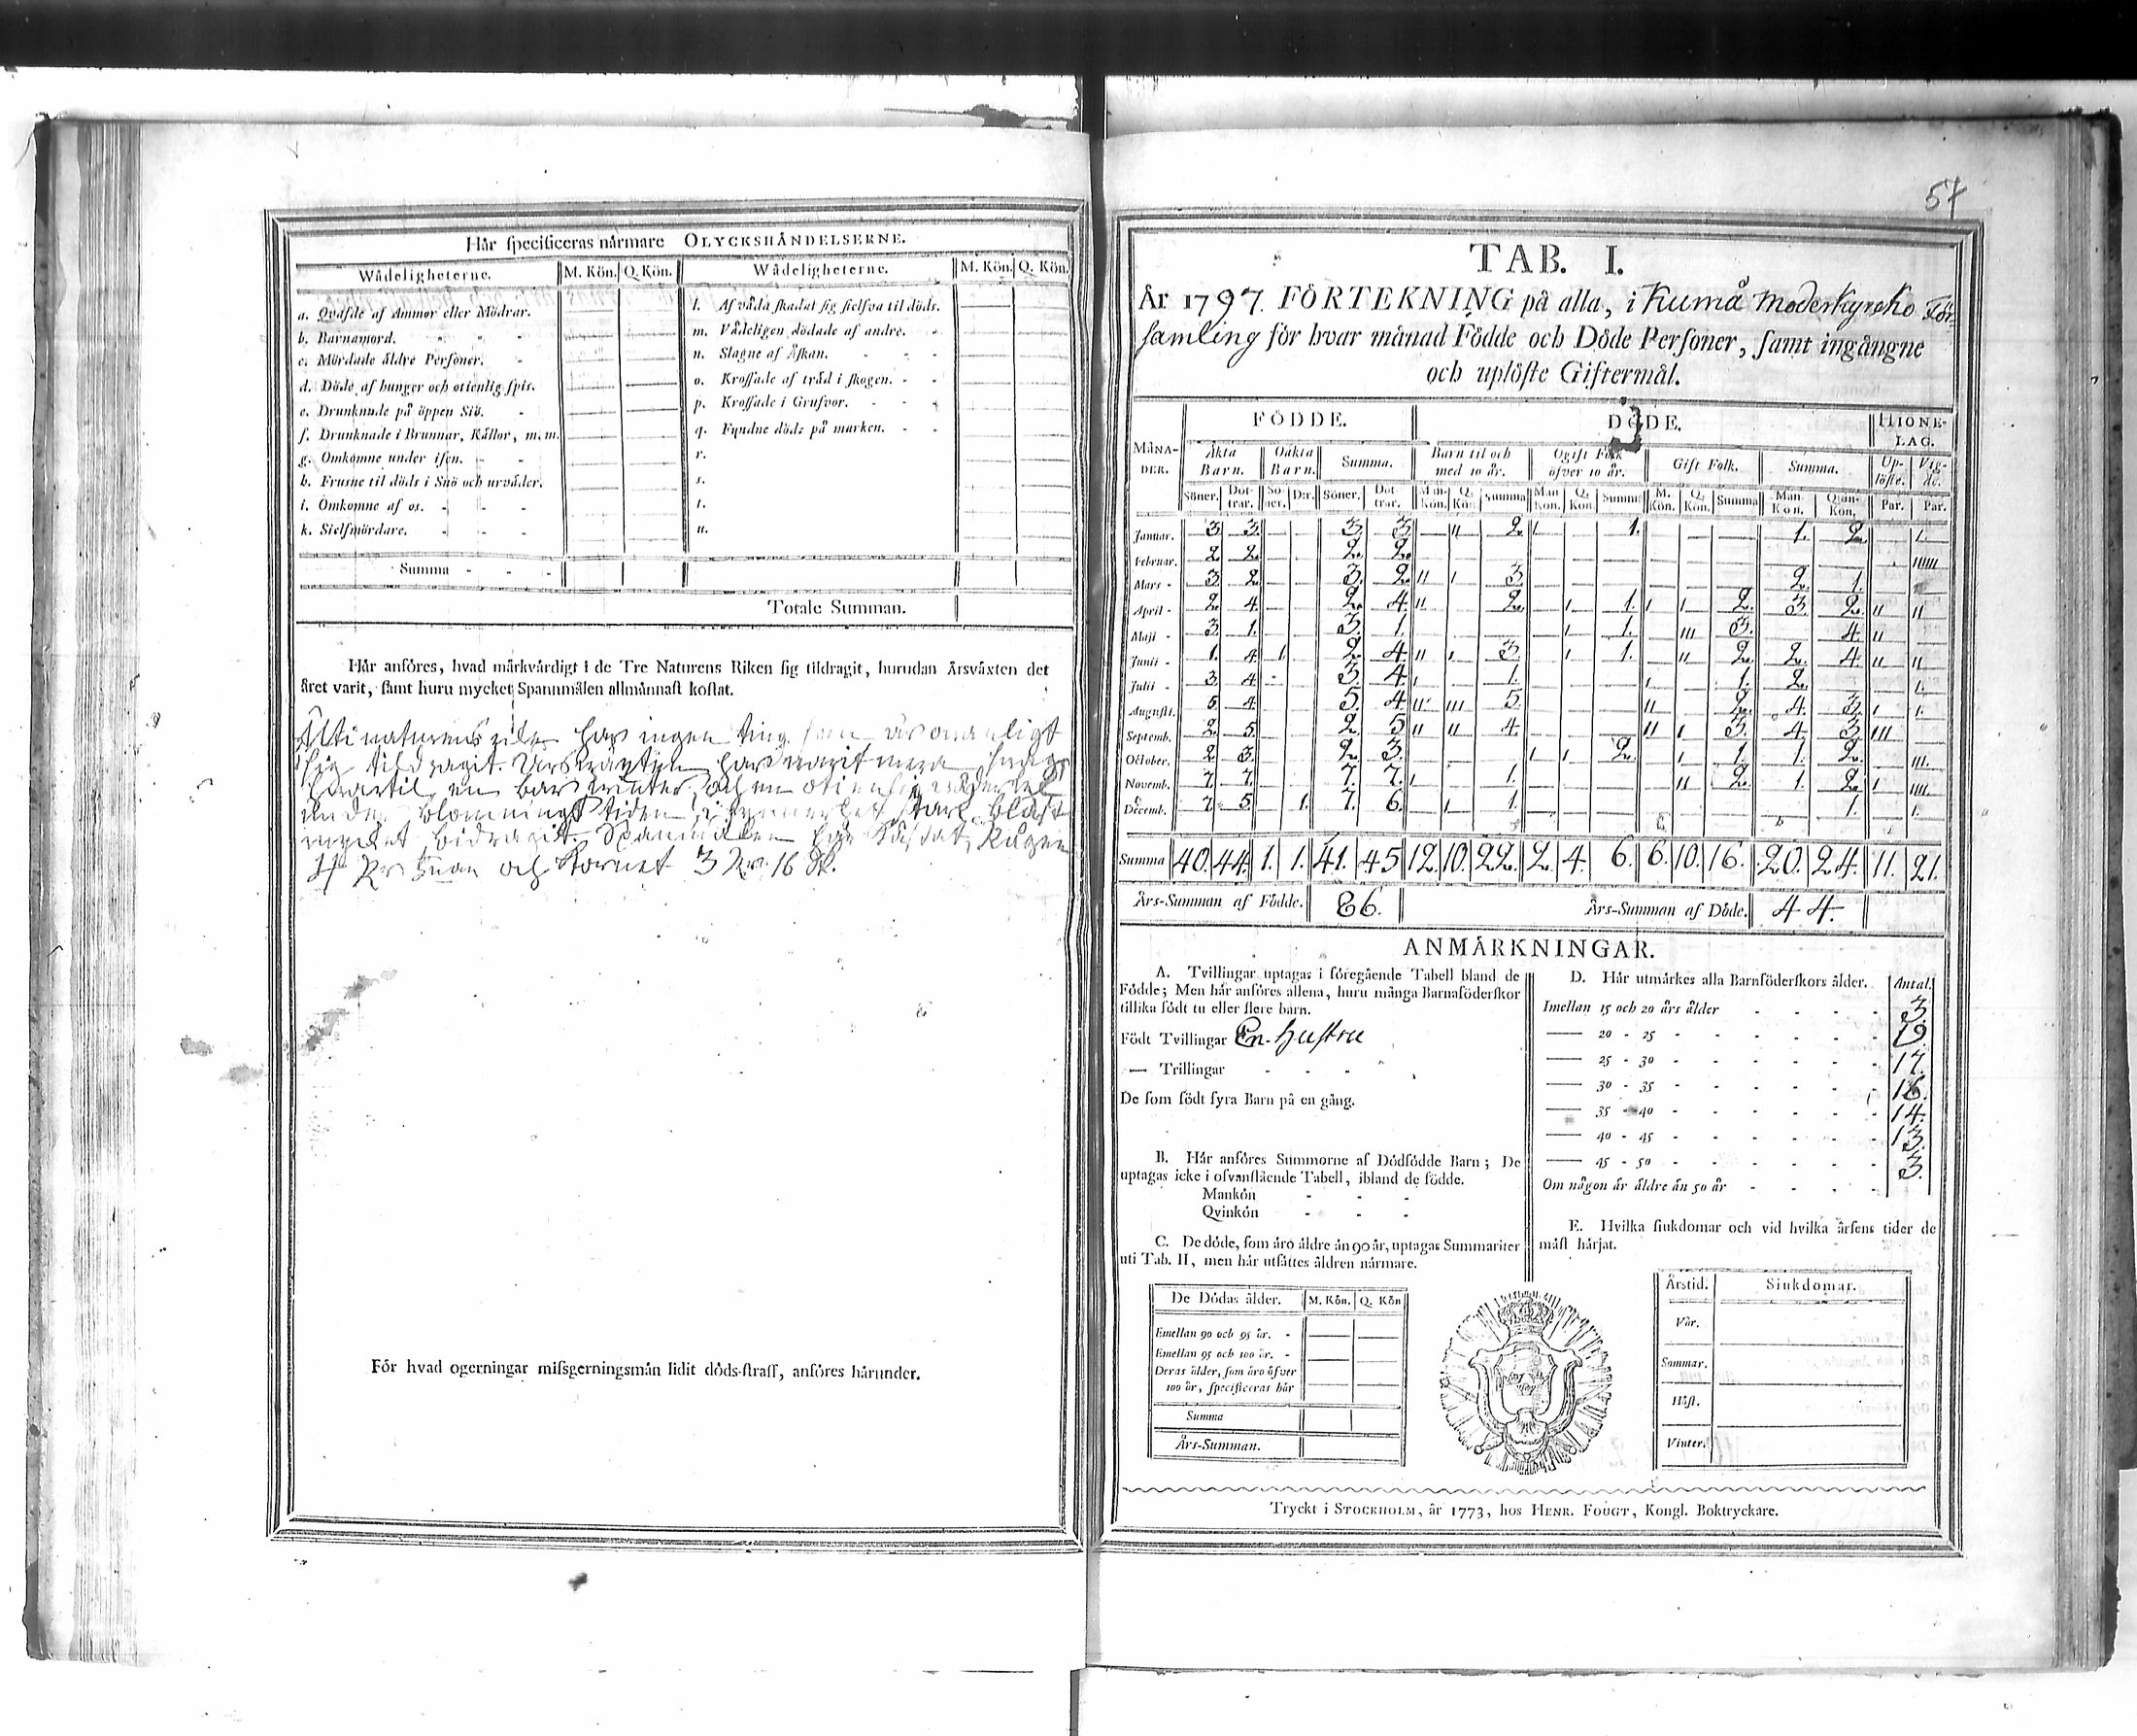 Hår specificeras nårmare OLYCKSHÅNDELSERNE.
Wådeligheterne. M. Kön. Q. Kön. Wådeligheterne. M. Kön. Q. Kön.
a. Qvafde af Ammor eller Mödrar.
b. Barnamord.
c. Mördade äldre Personer.
d. Döde af hunger och otienlig spis.
e. Drunknade på öppen Siö.
f. Drunknade i Brunnar, Källor, m.m.
g. Omkomne under isen.
h. Frusne til döds i Snö och urväder.
i. Omkomne af os.
k. Sielfmördare.
l. Af våda skadat sig sielfva til döds.
m. Vådeligen dödade af andre.
n. Slagne af Åskan.
o. Krossade af träd i skogen.
p. Krossade i Grufvor.
q. Fundne döde på marken.
r.
s.
t.
u.
Summa
Totale Summan.
Hår anföres, hvad mårkvårdigt i de Tre Naturens Riken sig tildragit, hurudan Årsväxten det
året varit, samt huru mycket Spannmålen allmånnast kostat.
har ingen ting
sig tildragit. Årsväxten har varit
hvartil en bar winter, och en
under blomnings tiden, stark blåst
mycket bidragit. Spanmålen har kåstat, Rågen
och Kornet 3 Rr. 16 sk.
För hvad ogerningar missgerningsmån lidit döds-straff, anföres hårunder.
57
TAB. I.
År 1797. FÖRTEKNING på alla, i Kumå Moderkyrcko För-
samling för hvar månad Födde och Döde Personer, samt ingångne
och uplöste Giftermål.
FÖDDE. DÖDE. HIONE-LAG.
MÅNA-DER. Äkta Barn. Oäkta Barn. Summa. Barn til och med 10 år. Ogift Folk öfver 10 år. Gift Folk. Summa. Up-löste. Vig-de.
Söner. Döt-trar. Sö-ner. Dtr. Söner. Döt-trar. Man-kön. Q. Kön Summa Man Kön. Q. Kön. Summa M. Kön. Q. Kön. Summa Man Kön. Qvin-Kön. Par. Par.
Januar. 3. 3. 3. 3. — 11 2. 1 1. 1. 2. 1.
Februar. 2 2. 2. 2. 11111
Mars 3 2. 3. 2. 11 1 3. 2. 1.
April 2 4. 2. 4. 11 2. 1 1. 1 1 2. 3. 2. 11 11
Maji 3. 1. 3. 1. 1 1. 111 3. 4. 11
Junii 1. 4. 1 2. 4. 11 1 3. 1 1. 11 2. 2. 4. 11 11
Julii 3. 4. 3. 4. 1 1. 1 1. 2. 1.
Augusti. 5 4. 5. 4. 11 111 5. 11 2. 4. 3. 1 1.
Septemb. 2. 5. 2. 5 11 11 4. 11 1 3. 4. 3. 111
October. 2 3. 2. 3. 1 1 2. 1 1. 1. 2. 111.
Novemb. 7. 7. 7. 7. 1 1. 11 2. 1. 2. 1 1111.
Decemb. 7. 5. 1. 7. 6. 1 1. 1. 1.
Summa 40. 44. 1. 1. 41. 45 12. 10. 22. 2. 4. 6. 6. 10. 16. 20. 24. 11. 21.
Års-Summan af Födde. 86. Års-Summan af Döde. 44.
ANMÅRKNINGAR.
A. Tvillingar uptagas i föregående Tabell bland de
Födde; Men hår anföres allena, huru många Barnaföderskor
tillika födt tu eller flere barn.
Födt Tvillingar En Hustru
— Trillingar
De som födt fyra Barn på en gång.
B. Hår anföres Summorne af Dödfödde Barn; De
uptagas icke i ofvanstående Tabell, ibland de födde.
Mankön
Qvinkön
C. De döde, som åro åldre ån 90 år, uptagas Summariter
uti Tab. II, men hår utsåttes åldren nårmare.
De Dödas ålder. M. Kön. Q. Kön
Emellan 90 och 95 år.
Emellan 95 och 100 år.
Deras ålder, som äro öfver
100 år, specificeras här
Summa
Års-Summan.
D. Hår utmårkes alla Barnföderskors ålder. Antal.
Imellan 15 och 20 års ålder 3.
— 20 - 25 19
— 25 - 30 17.
— 30 - 35 16.
— 35 - 40 14.
— 40 - 45 13.
— 45 - 50 3.
Om någon är äldre än 50 år
E. Hvilka siukdomar och vid hvilka årsens tider de
måst hårjat.
Årstid. Siukdomar.
Vår.
Sommar.
Höst.
Vinter.
Tryckt i STOCKHOLM, år 1773, hos HENR. FOUGT, Kongl. Boktryckare.